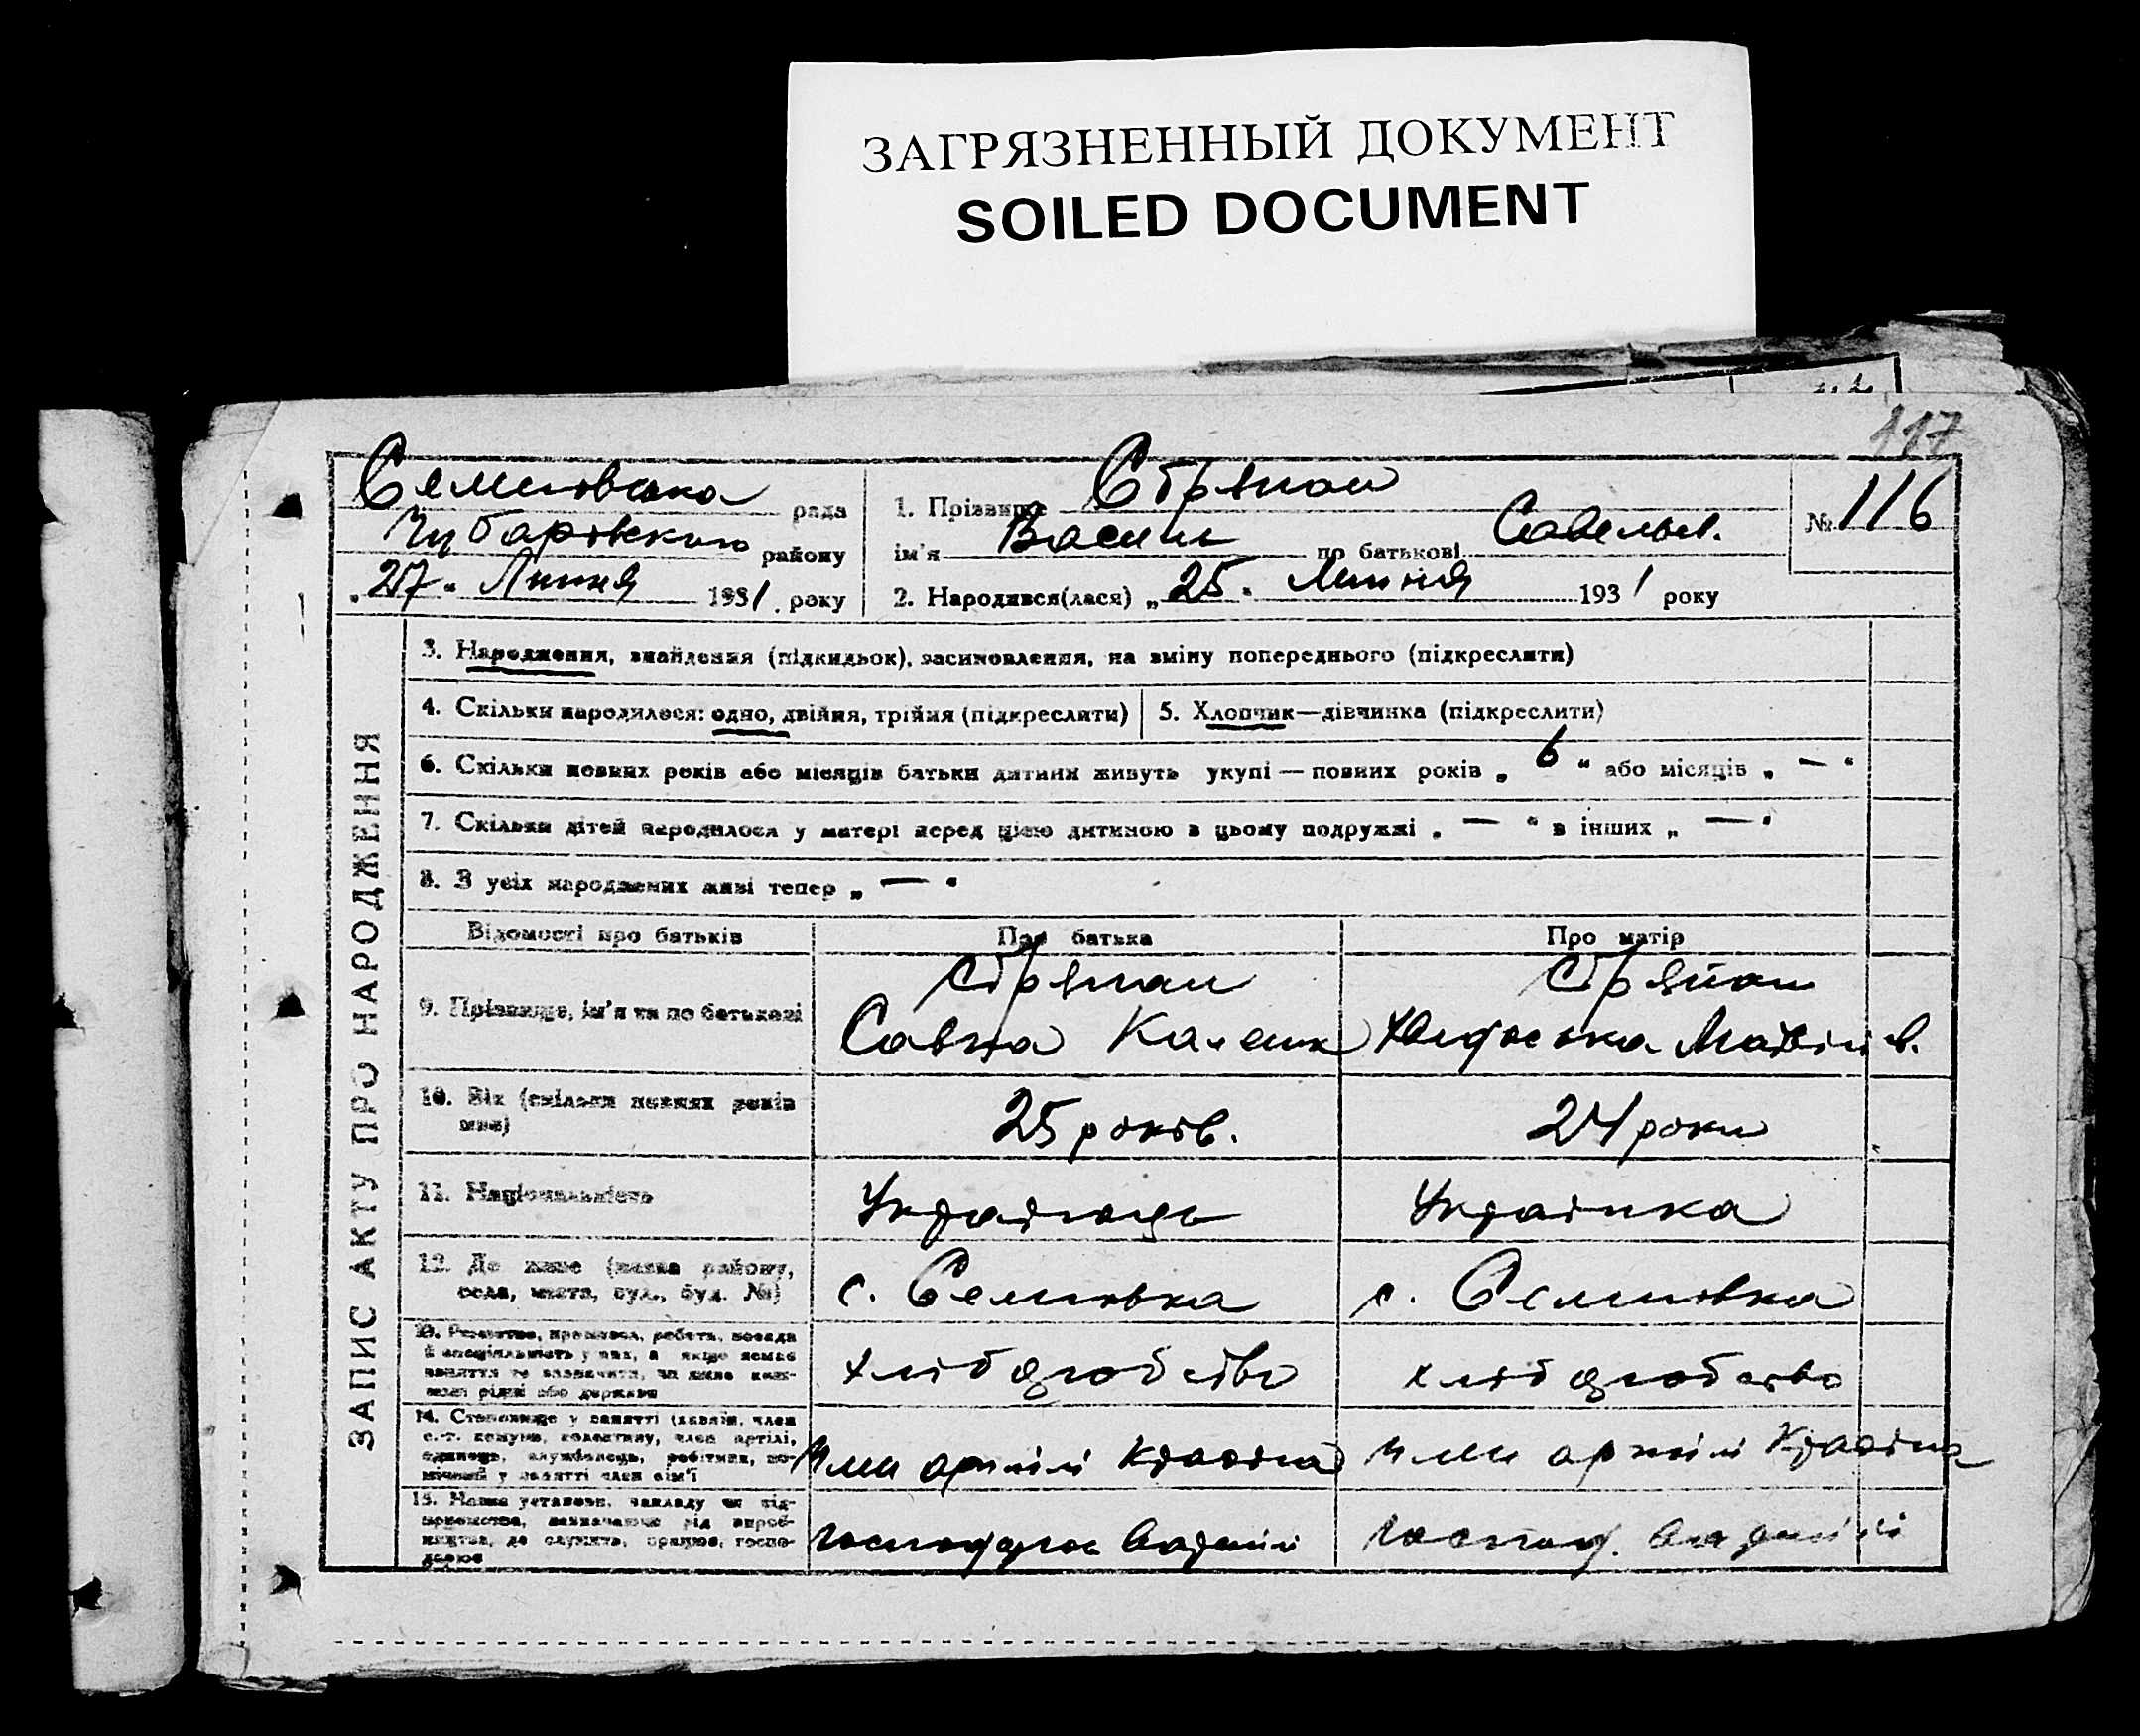 ЗАГРЯЗНЕННЫЙ ДОКУМЕНТ
SOILED DOCUMENT
117
Семенівська рада
Чубарівського району
„27“ Липня 1931 року
1. Прізвище
ім'я Василь по батькові Савельев.
№ 116
2. Народився(лася) „25“ Липня 1931 року
ЗАПИС АКТУ ПРО НАРОДЖЕННЯ
3. Народження, знайдення (підкидьок), засиновлення, на зміну попереднього (підкреслити)
4. Скільки народилося: одно, двійня, трійня (підкреслити)
5. Хлопчик—дівчинка (підкреслити)
6. Скільки повних років або місяців батьки дитини живуть укупі — повних років „6“ або місяців „—“
7. Скільки дітей народилося у матері перед цією дитиною в цьому подружжі „—“ в інших „—“
8. З усіх народжених живі тепер „—“
Відомості про батьків
Про батька
Про матір
9. Прізвище, ім'я та по батькові
Савка
10. Вік (скільки повних років має)
25 років.
24 роки
11. Національність
Українець
Українка
12. Де живе (назва району, села, міста, вул., буд. №)
с. Семенівка
с. Семенівка
хліборобство
хліборобство
14. Становище у занятті (хазяїн, член
с.-г. комуни, колективу, член артілі,
одинець, службовець, робітник, по-
мічний у занятті член сім'ї
Член артілі
Член артілі
15. Назва установи, закладу чи під-
приємства, зазначаючи рід вироб-
ництва, де служить, працює, госпо-
дарює